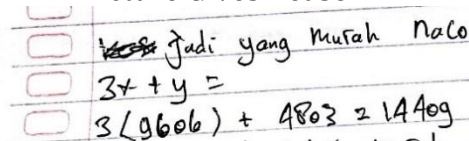 Jadi yang murah Naco
3x + y =
3(9606) + 4803 = 14409